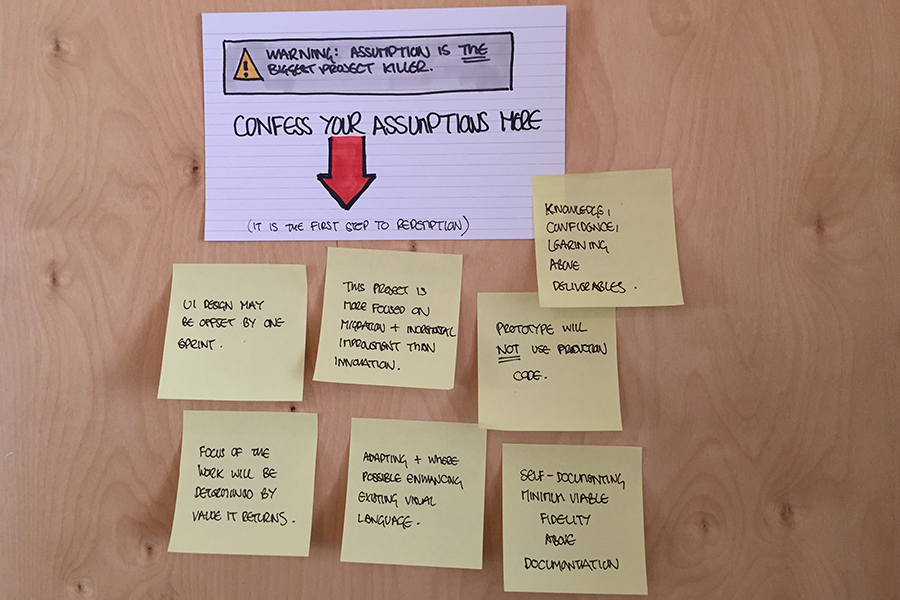 WARNING: ASSUMPTION IS THE
BIGGEST PROJECT KILLER.
CONFESS YOUR ASSUMPTIONS MORE
(IT IS THE FIRST STEP TO REDEMPTION)
KNOWLEDGE,
CONFIDENCE,
LEARNING
ABOVE
DELIVERABLES.
UI DESIGN MAY
BE OFFSET BY ONE
SPRINT.
THIS PROJECT IS
MORE FOCUSED ON
MIGRATION + INCREMENTAL
IMPROVMENT THAN
INNOVATION.
PROTOTYPE WILL
NOT USE PRODUCTION
CODE.
FOCUS OF THE
WORK WILL BE
DETERMINED BY
VALUE IT RETURNS.
ADAPTING + WHERE
POSSIBLE ENHANCING
EXISTING VISUAL
LANGUAGE.
SELF-DOCUMENTING
MINIMUM VIABLE
FIDELITY
ABOVE
DOCUMENTATION